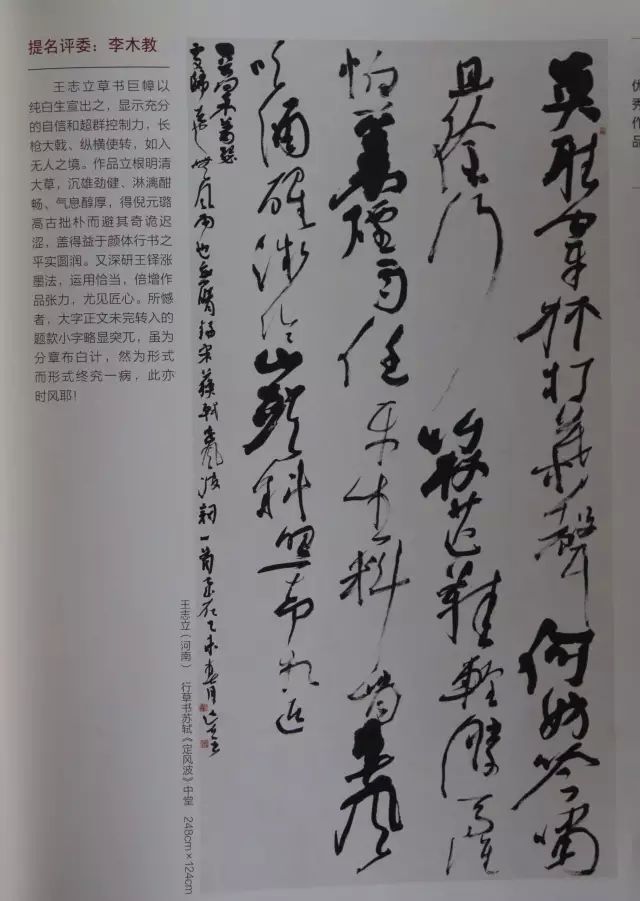 提名评委：李木教
王志立草书巨幛以
纯白生宣出之，显示充分
的自信和超群控制力，长
枪大戟、纵横使转，如入
无人之境。作品立根明清
大草，沉雄劲健、淋漓酣
畅、气息醇厚，得倪元璐
高古拙朴而避其奇诡迟
涩，盖得益于颜体行书之
平实圆润。又深研王铎涨
墨法，运用恰当，倍增作
品张力，尤见匠心。所憾
者，大字正文未完转入的
题款小字略显突兀，虽为
分章布白计，然为形式
而形式终究一病，此亦
时风耶！
莫聽穿林打葉聲何妨吟嘯
且徐行竹杖芒鞋輕勝馬誰
怕一蓑煙雨任平生料峭春風
吹酒醒微冷山頭斜照却相迎
回首向來蕭瑟
處歸去也無風雨也無晴 錄宋蘇軾定風波詞一首 乙未春月志立
王志立（河南） 行草书苏轼《定风波》中堂 248cm×124cm
优秀作品